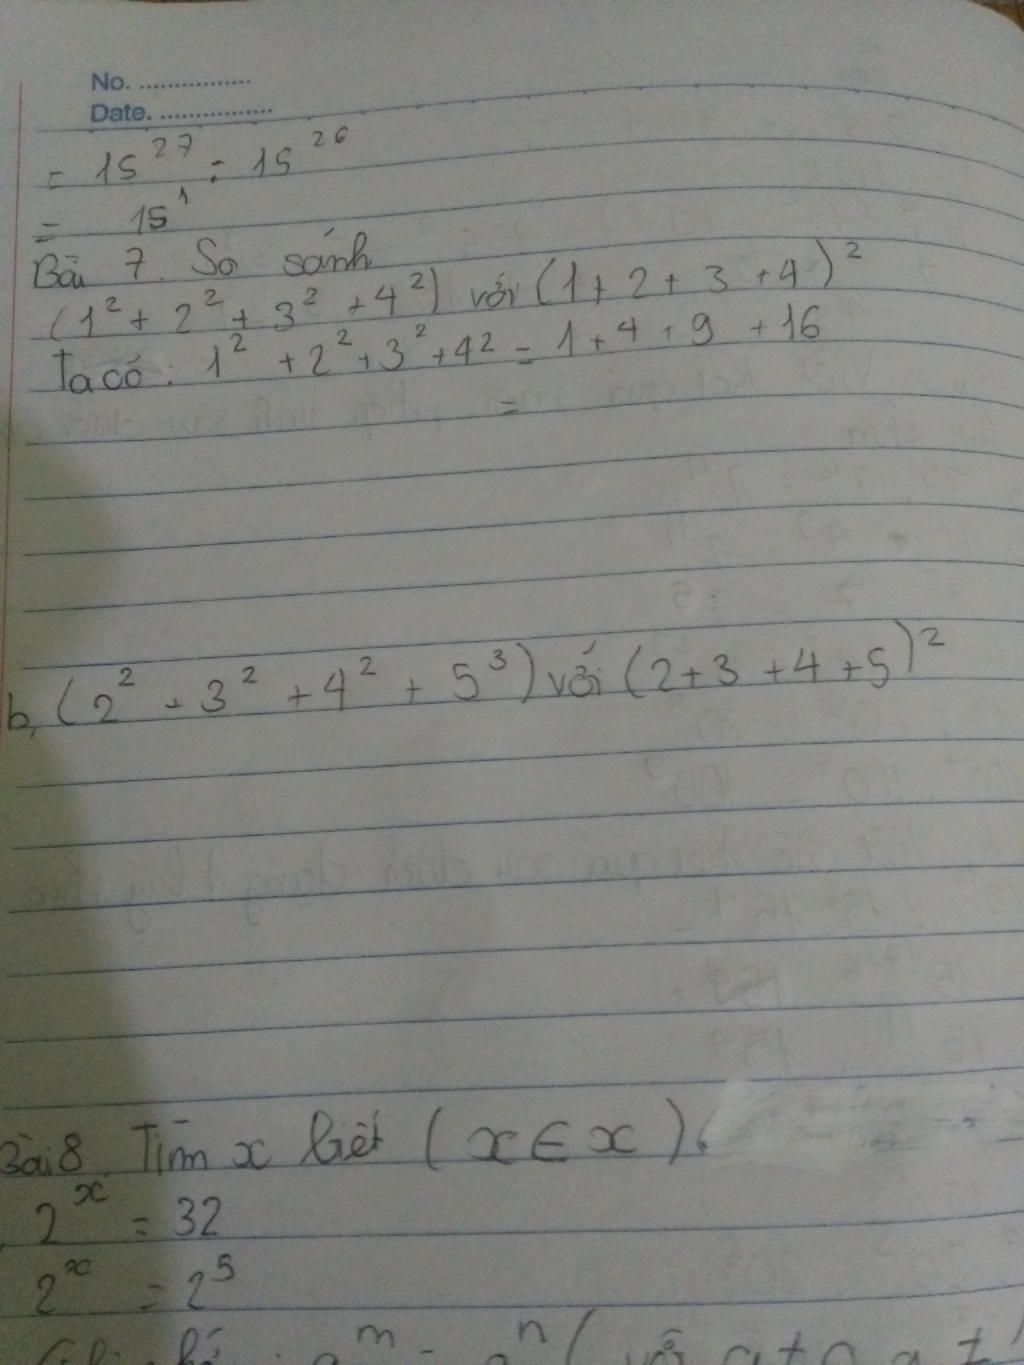 No. ................
Date. ................
= 15²⁷ : 15²⁶
= 15¹
Bài 7. So sánh
(1² + 2² + 3² + 4²) với (1 + 2 + 3 + 4)²
Ta có: 1² + 2² + 3² + 4² = 1 + 4 + 9 + 16
=
b, (2² + 3² + 4² + 5³) với (2 + 3 + 4 + 5)²
Bài 8. Tìm x biết (x ∈ x).
2ˣ = 32
2ˣ = 2⁵